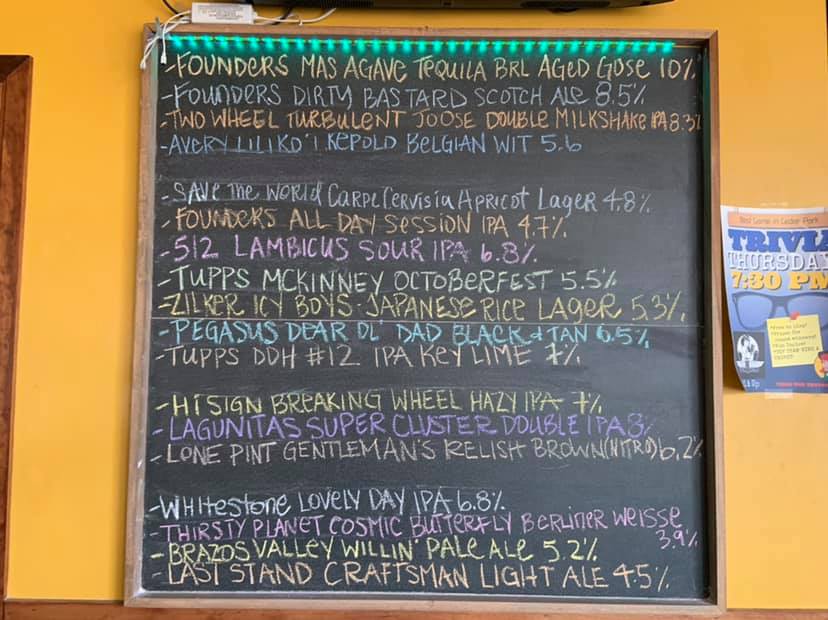 -FOUNDERS MAS AGAVE TEQUILA BRL AGED GOSE 10%
-FOUNDERS DIRTY BASTARD SCOTCH ALE 8.5%
-TWO WHEEL TURBULENT JOOSE DOUBLE MILKSHAKE IPA 8.3%
-AVERY LILIKO'I KEPOLO BELGIAN WIT 5.6
-SAVE THE WORLD CARPE CERVISIA APRICOT LAGER 4.8%
-FOUNDERS ALL DAY SESSION IPA 4.7%
-512 LAMBICUS SOUR IPA 6.8%
-TUPPS MCKINNEY OCTOBERFEST 5.5%
-ZILKER ICY BOYS-JAPANESE RICE LAGER 5.3%
-PEGASUS DEAR OL' DAD BLACK & TAN 6.5%
-TUPPS DDH #12 IPA KEY LIME 7%
-HI SIGN BREAKING WHEEL HAZY IPA 7%
-LAGUNITAS SUPER CLUSTER DOUBLE IPA 8%
-LONE PINT GENTLEMAN'S RELISH BROWN (NITRO) 6.2%
-WHITESTONE LOVELY DAY IPA 6.8%
-THIRSTY PLANET COSMIC BUTTERFLY BERLINER WEISSE
3.9%
-BRAZOS VALLEY WILLIN' PALE ALE 5.2%
-LAST STAND CRAFTSMAN LIGHT ALE 4.5%
Best Game in Cedar Park
TRIVIA
THURSDAY
7:30 PM